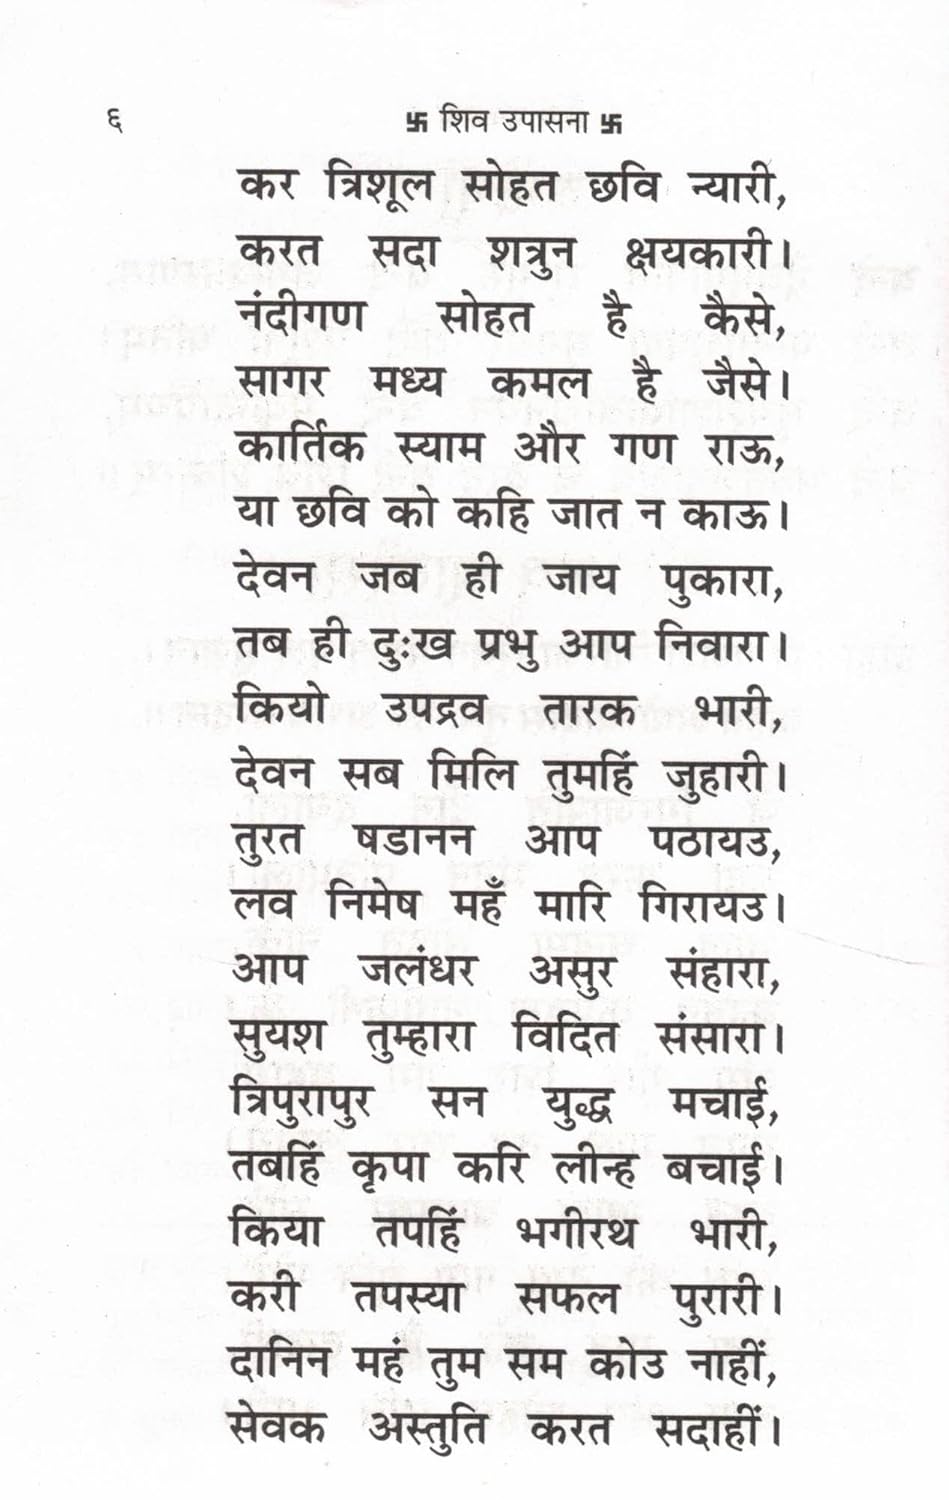 ६ 卐 शिव उपासना 卐
कर त्रिशूल सोहत छवि न्यारी,
करत सदा शत्रुन क्षयकारी।
नंदीगण सोहत है कैसे,
सागर मध्य कमल है जैसे।
कार्तिक स्याम और गण राऊ,
या छवि को कहि जात न काऊ।
देवन जब ही जाय पुकारा,
तब ही दुःख प्रभु आप निवारा।
कियो उपद्रव तारक भारी,
देवन सब मिलि तुमहिं जुहारी।
तुरत षडानन आप पठायउ,
लव निमेष महँ मारि गिरायउ।
आप जलंधर असुर संहारा,
सुयश तुम्हारा विदित संसारा।
त्रिपुरापुर सन युद्ध मचाई,
तबहिं कृपा करि लीन्ह बचाई।
किया तपहिं भगीरथ भारी,
करी तपस्या सफल पुरारी।
दानिन महं तुम सम कोउ नाहीं,
सेवक अस्तुति करत सदाहीं।